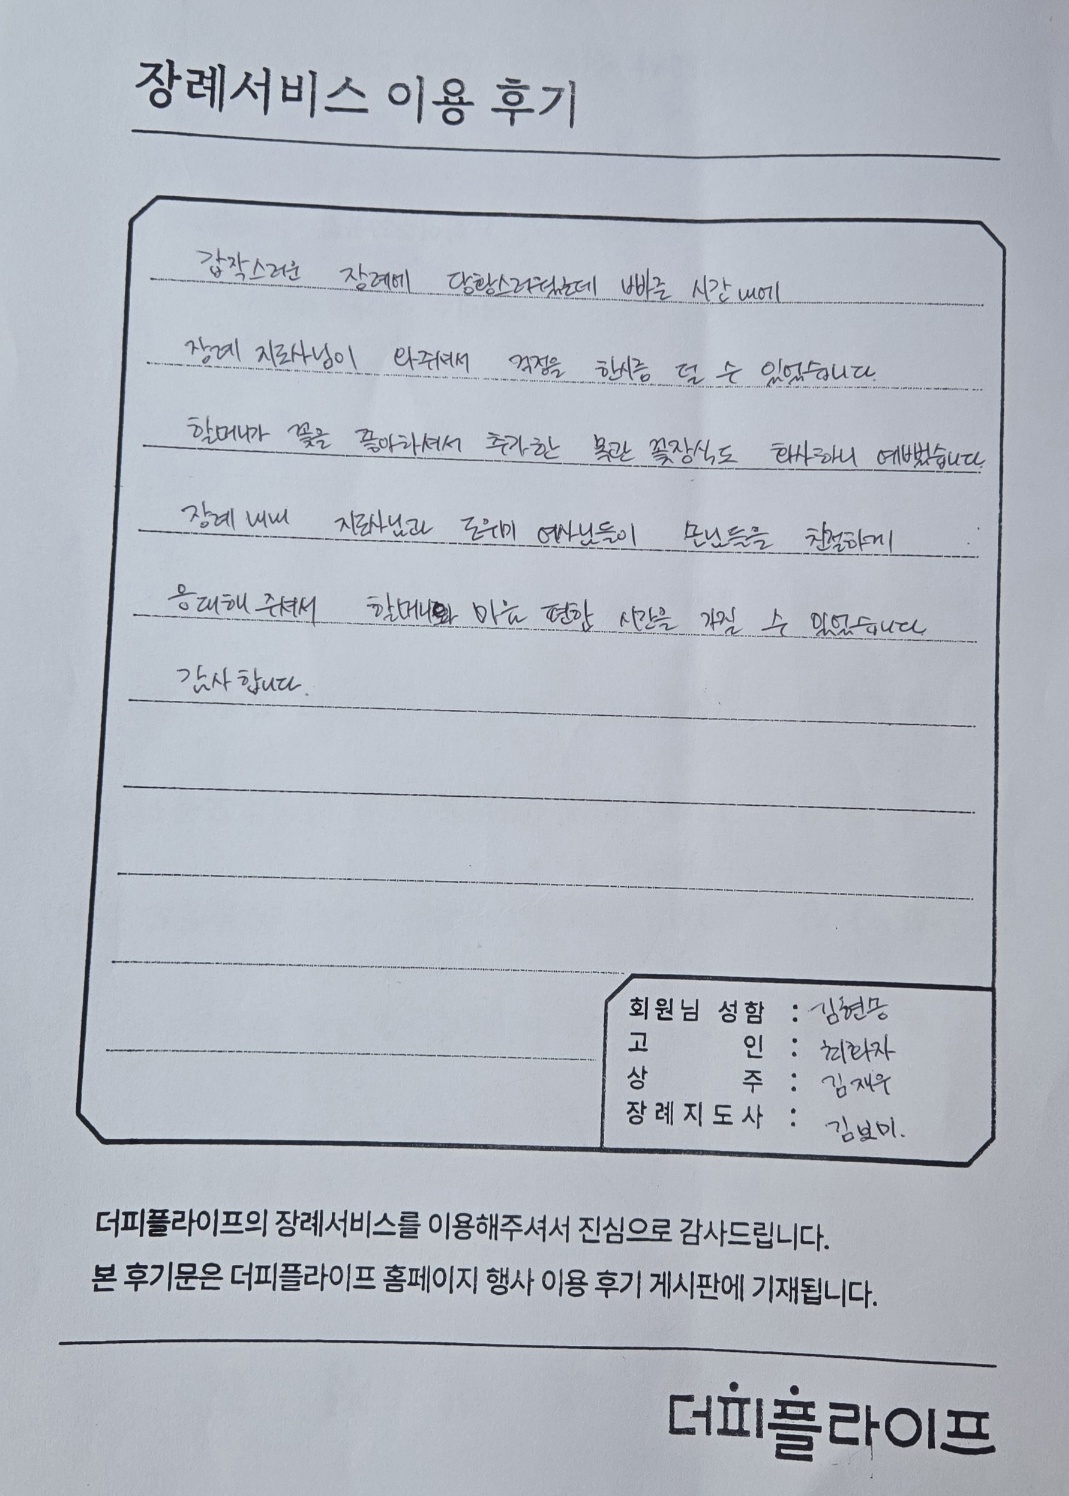 장례서비스 이용 후기
갑작스러운 장례에 당황스러웠는데 빠른 시간 내에
장례 지도사님이 와주셔서 걱정을 한시름 덜 수 있었습니다.
할머니가 꽃을 좋아하셔서 추가한 목관 꽃장식도 화사하니 예뻤습니다
장례 내내 지도사님과 도우미 여사님들이 손님들을 친절하게
응대해 주셔서 할머니와 마음 편한 시간을 가질 수 있었습니다
감사합니다.
회원님 성함 :
고 인 :
상 주 : 김재우
장례지도사 : 김보미.
더피플라이프의 장례서비스를 이용해주셔서 진심으로 감사드립니다.
본 후기문은 더피플라이프 홈페이지 행사 이용 후기 게시판에 기재됩니다.
더피플라이프